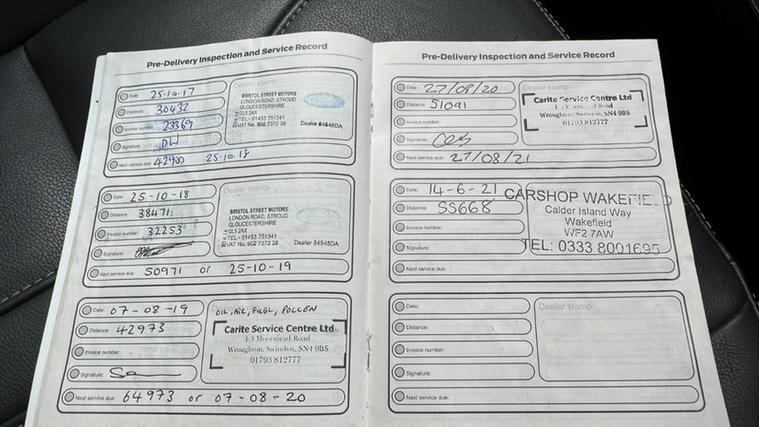 Pre-Delivery Inspection and Service Record
Date: 25-10-17
Distance: 30432
Invoice number: 23369
Signature: DW
Next service due: 42900 25-10-18
Dealer stamp
BRISTOL STREET MOTORS
LONDON ROAD, STROUD
GLOUCESTERSHIRE
GL5 2AX
TEL:- 01453 751341
VAT No. 902 7372 38 Dealer 84548DA
Date: 25-10-18
Distance: 38471
Invoice number: 32253
Signature:
Next service due: 50971 or 25-10-19
Dealer stamp
BRISTOL STREET MOTORS
LONDON ROAD, STROUD
GLOUCESTERSHIRE
GL5 2AX
TEL:- 01453 751341
VAT No. 902 7372 38 Dealer 84548DA
Date: 07-08-19
Distance: 42973
Invoice number:
Signature:
Next service due: 64973 or 07-08-20
OIL, AIR, FUEL, POLLEN
Carite Service Centre Ltd
1-3 Moormead Road
Wroughton, Swindon, SN4 9BS
01793 812777
Pre-Delivery Inspection and Service Record
Date: 27/08/20
Distance: 51091
Invoice number:
Signature:
Next service due: 27/08/21
Dealer stamp
Carite Service Centre Ltd
Road
Wroughton, Swindon, SN4 9BS
01793 812777
Date: 14-6-21
Distance: 55668
Invoice number:
Signature:
Next service due:
Dealer stamp
CARSHOP WAKEFIELD
Calder Island Way
Wakefield
WF2 7AW
TEL: 0333 8001695
Date:
Distance:
Invoice number:
Signature:
Next service due:
Dealer stamp